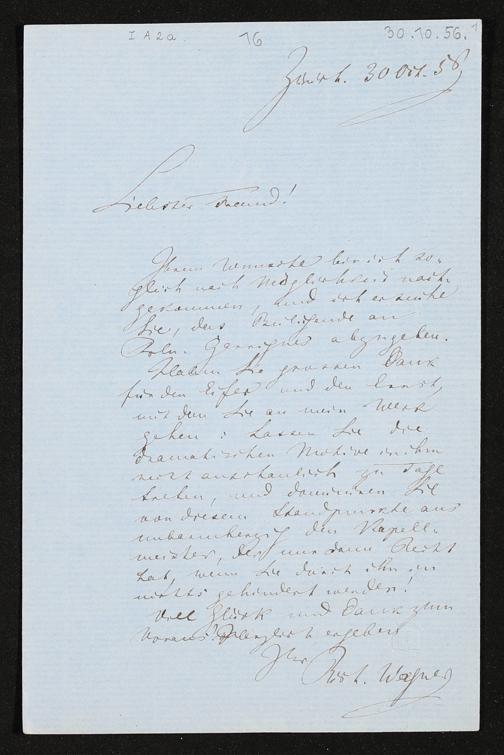 I A 2a 16 30.10.56. 1
Zürich. 30 Oct. 56
Liebster Freund!
Ihrem Wunsche bin ich so-
gleich nach Möglichkeit nach-
gekommen, und ich ersuche
Sie, das Beiliegende an
Garrigues abzugeben.
Haben Sie grossen Dank
für den Eifer und den Ernst,
mit dem Sie an mein Werk
gehen: lassen Sie die
dramatischen Motive in ihm
recht anschaulich zu Tage
treten, und dominiren Sie
von diesem Standpunkte aus
unbarmherzig den Kapell-
meister, der nur dann Recht
hat, wenn Sie durch ihn in
nichts gehindert werden!
Viel Glück und Dank zum
voraus! Herzlich ergeben
Ihr
Rich. Wagner